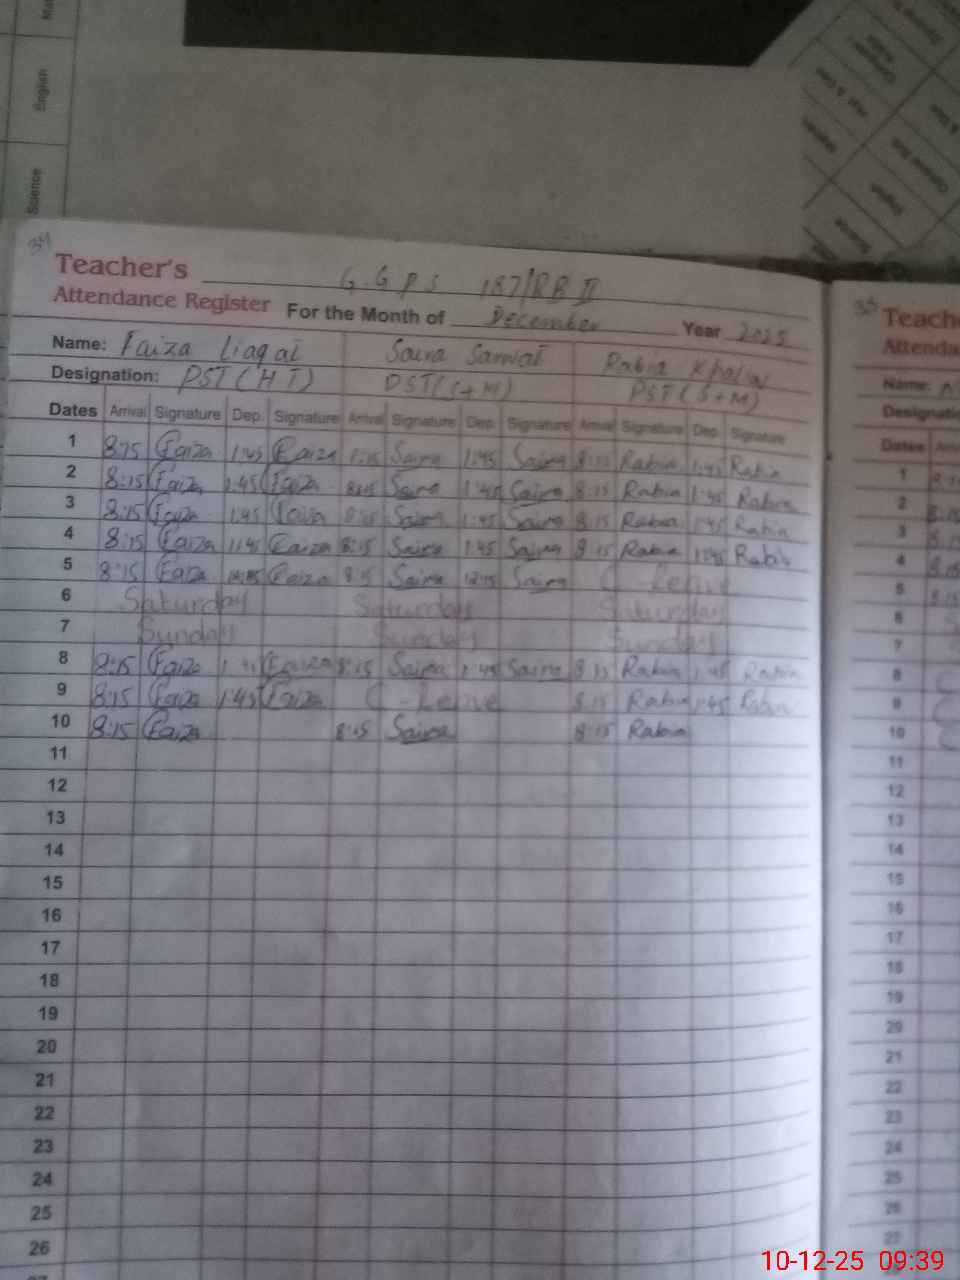 Mat
English
Science
34
Teacher's G.G P S 187/RB II
Attendance Register For the Month of December Year 2025
Name: Faiza Liaqat Saira Sarwat Rabia Khaliq
Designation: PST (H T) PST(S+M) PST(S+M)
Dates Arrival Signature Dep. Signature Arrival Signature Dep. Signature Arrival Signature Dep. Signature
1 8:15 Faiza 1:45 Faiza 8:15 Saira 1:45 Saira 8:15 Rabia 1:45 Rabia
2 8:15 Faiza 1:45 Faiza 8:15 Saira 1:45 Saira 8:15 Rabia 1:45 Rabia
3 8:15 Faiza 1:45 Faiza 8:15 Saira 1:45 Saira 8:15 Rabia 1:45 Rabia
4 8:15 Faiza 1:45 Faiza 8:15 Saira 1:45 Saira 8:15 Rabia 1:45 Rabia
5 8:15 Faiza Faiza 8:15 Saira 12:15 Saira C-Leave
6 Saturday Saturday Saturday
7 Sunday Sunday Sunday
8 8:15 Faiza 1:45 Faiza 8:15 Saira 1:45 Saira 8:15 Rabia 1:45 Rabia
9 8:15 Faiza 1:45 Faiza C-Leave 8:15 Rabia 1:45 Rabia
10 8:15 Faiza 8:15 Saira 8:15 Rabia
11
12
13
14
15
16
17
18
19
20
21
22
23
24
25
26
35
Teach
Attenda
Name: A
Designatio
Dates Arri
1
2
3
4
5
6
7
8
9
10
11
12
13
14
15
16
17
18
19
20
21
22
23
24
25
26
27
10-12-25 09:39